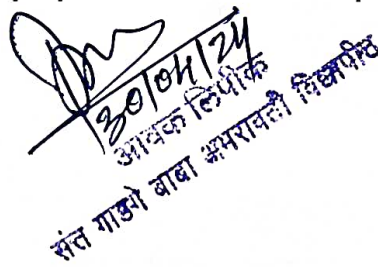 30/04/24
आवक लिपीक
संत गाडगे बाबा अमरावती विद्यापीठ